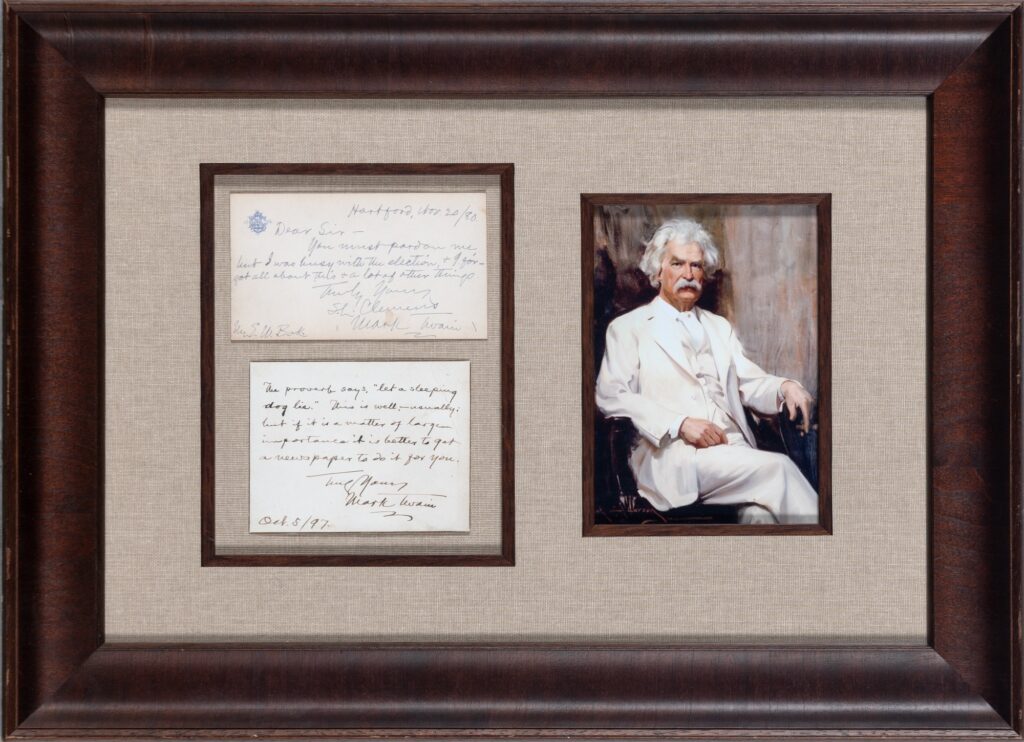 Hartford, Nov 20/80.
Dear Sir —
You must pardon me
but I was busy with the election, & I for-
got all about this & a lot of other things
Truly Yours
S.L. Clemens
Mark Twain
The proverb says, "let a sleeping
dog lie." This is well,—usually;
but if it is a matter of large
importance it is better to get
a newspaper to do it for you.
Truly Yours
Mark Twain
Oct. 5/97.